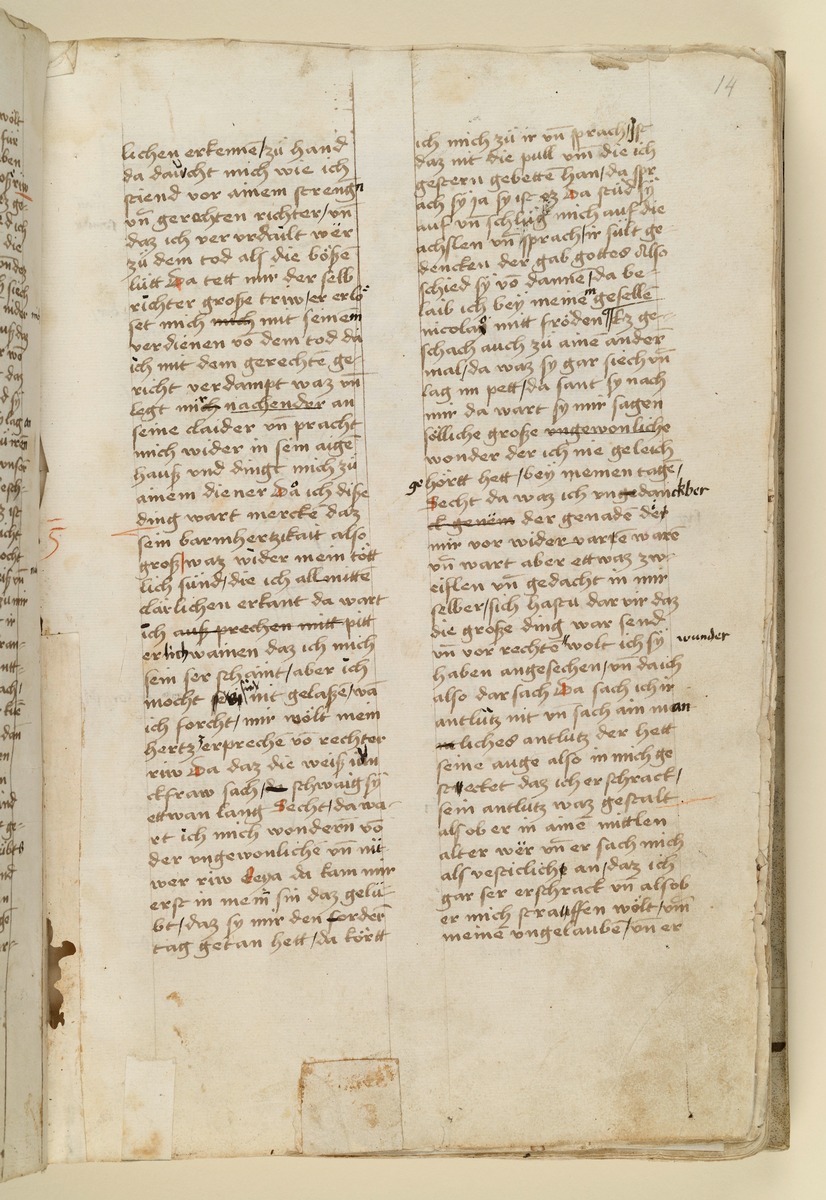 14
lichen erkennē / zů hand
da daucht mich wie ich
stiend vor ainem strengn
vn̄ gerechten richter / vn̄
daz ich ver vrdailt wer
zů dem tod als die bőßē
lütt Da tett mir der selb
richter große triw / er erlő
set mich mich mit seinem
verdienen vō dem tod da
ich mit dem gerechtē ge-
richt verdampt waz vn̄
legt mich nachender an
seine claider vn̄ pracht
mich wider in sein aigē
hauß vnd dingt mich zů
ainem diener Da ich diße
ding wart merckē daz
sein barmhertzikait also
groß waz wider mein tőtt
lich sünd / die ich all mittē
clärlichen erkant da wart
ich auß prechen mitt pitt
erlich wainen daz ich mich
sein ser schamt / aber ich
mocht sein nit gelaßē / wā
ich forcht / mir wőlt mein
hertz erprechē vō rechter
riw Da daz die weiß iun
ckfraw sach / schwaig sy
ettwan lang Secht / da wa-
rt ich mich wondern̄ vō
der vngewonlichē vn̄ nü-
wer riw Ecya da kam mir
erst in mein̄ sin daz gelü-
bt / daz sy mir den fordern̄
tag getan hett / da kőrtt
ich mich zů ir vn̄ sprach / Jst
daz nit die pull vm̄ die ich
gestern gebettē han / da spr
ach sy ja sy ist ez Da stůd sy
auf vn̄ schlůg mich auf die
achslen vn̄ sprach / ir sült ge-
dencken der gab gottes Also
schied sy vō dannē / da be-
laib ich bey meinem gesellē
nicolaus mitt frődēn Ez ge-
schach auch zů aine ander
mal / da waz sy gar siech vn̄
lag im pett / da sant sy nach
mir da wart sy mir sagen
sőlliche große vngewonliche
wonder der ich nie geleich
gehőrtt hett / bey meinen tagē /
Secht da waz ich vngedanckber
der genadē der
mir vor wider varē warē
vn̄ wart aber ettwaz zw-
eiflen vn̄ gedacht in mir
selber / sich hastu dar vir daz
die große ding war send
vn̄ vor rechtē wolt ich sy wunder
haben angesechen / vn da ich
also dar sach Da sach ich ir
antlütz nit vn̄ sach ain man
liches antlütz der hett
seine auge also in mich ge
sterket daz ich er schrack /
sein antlütz waz gestalt
als ob er in ainē mittlen
alter wer vn̄ er sach mich
als vesticliche an / daz ich
gar ser erschrack vn als ob
er mich strauffen wőlt / vm̄
meinē vngelaubē / vn er